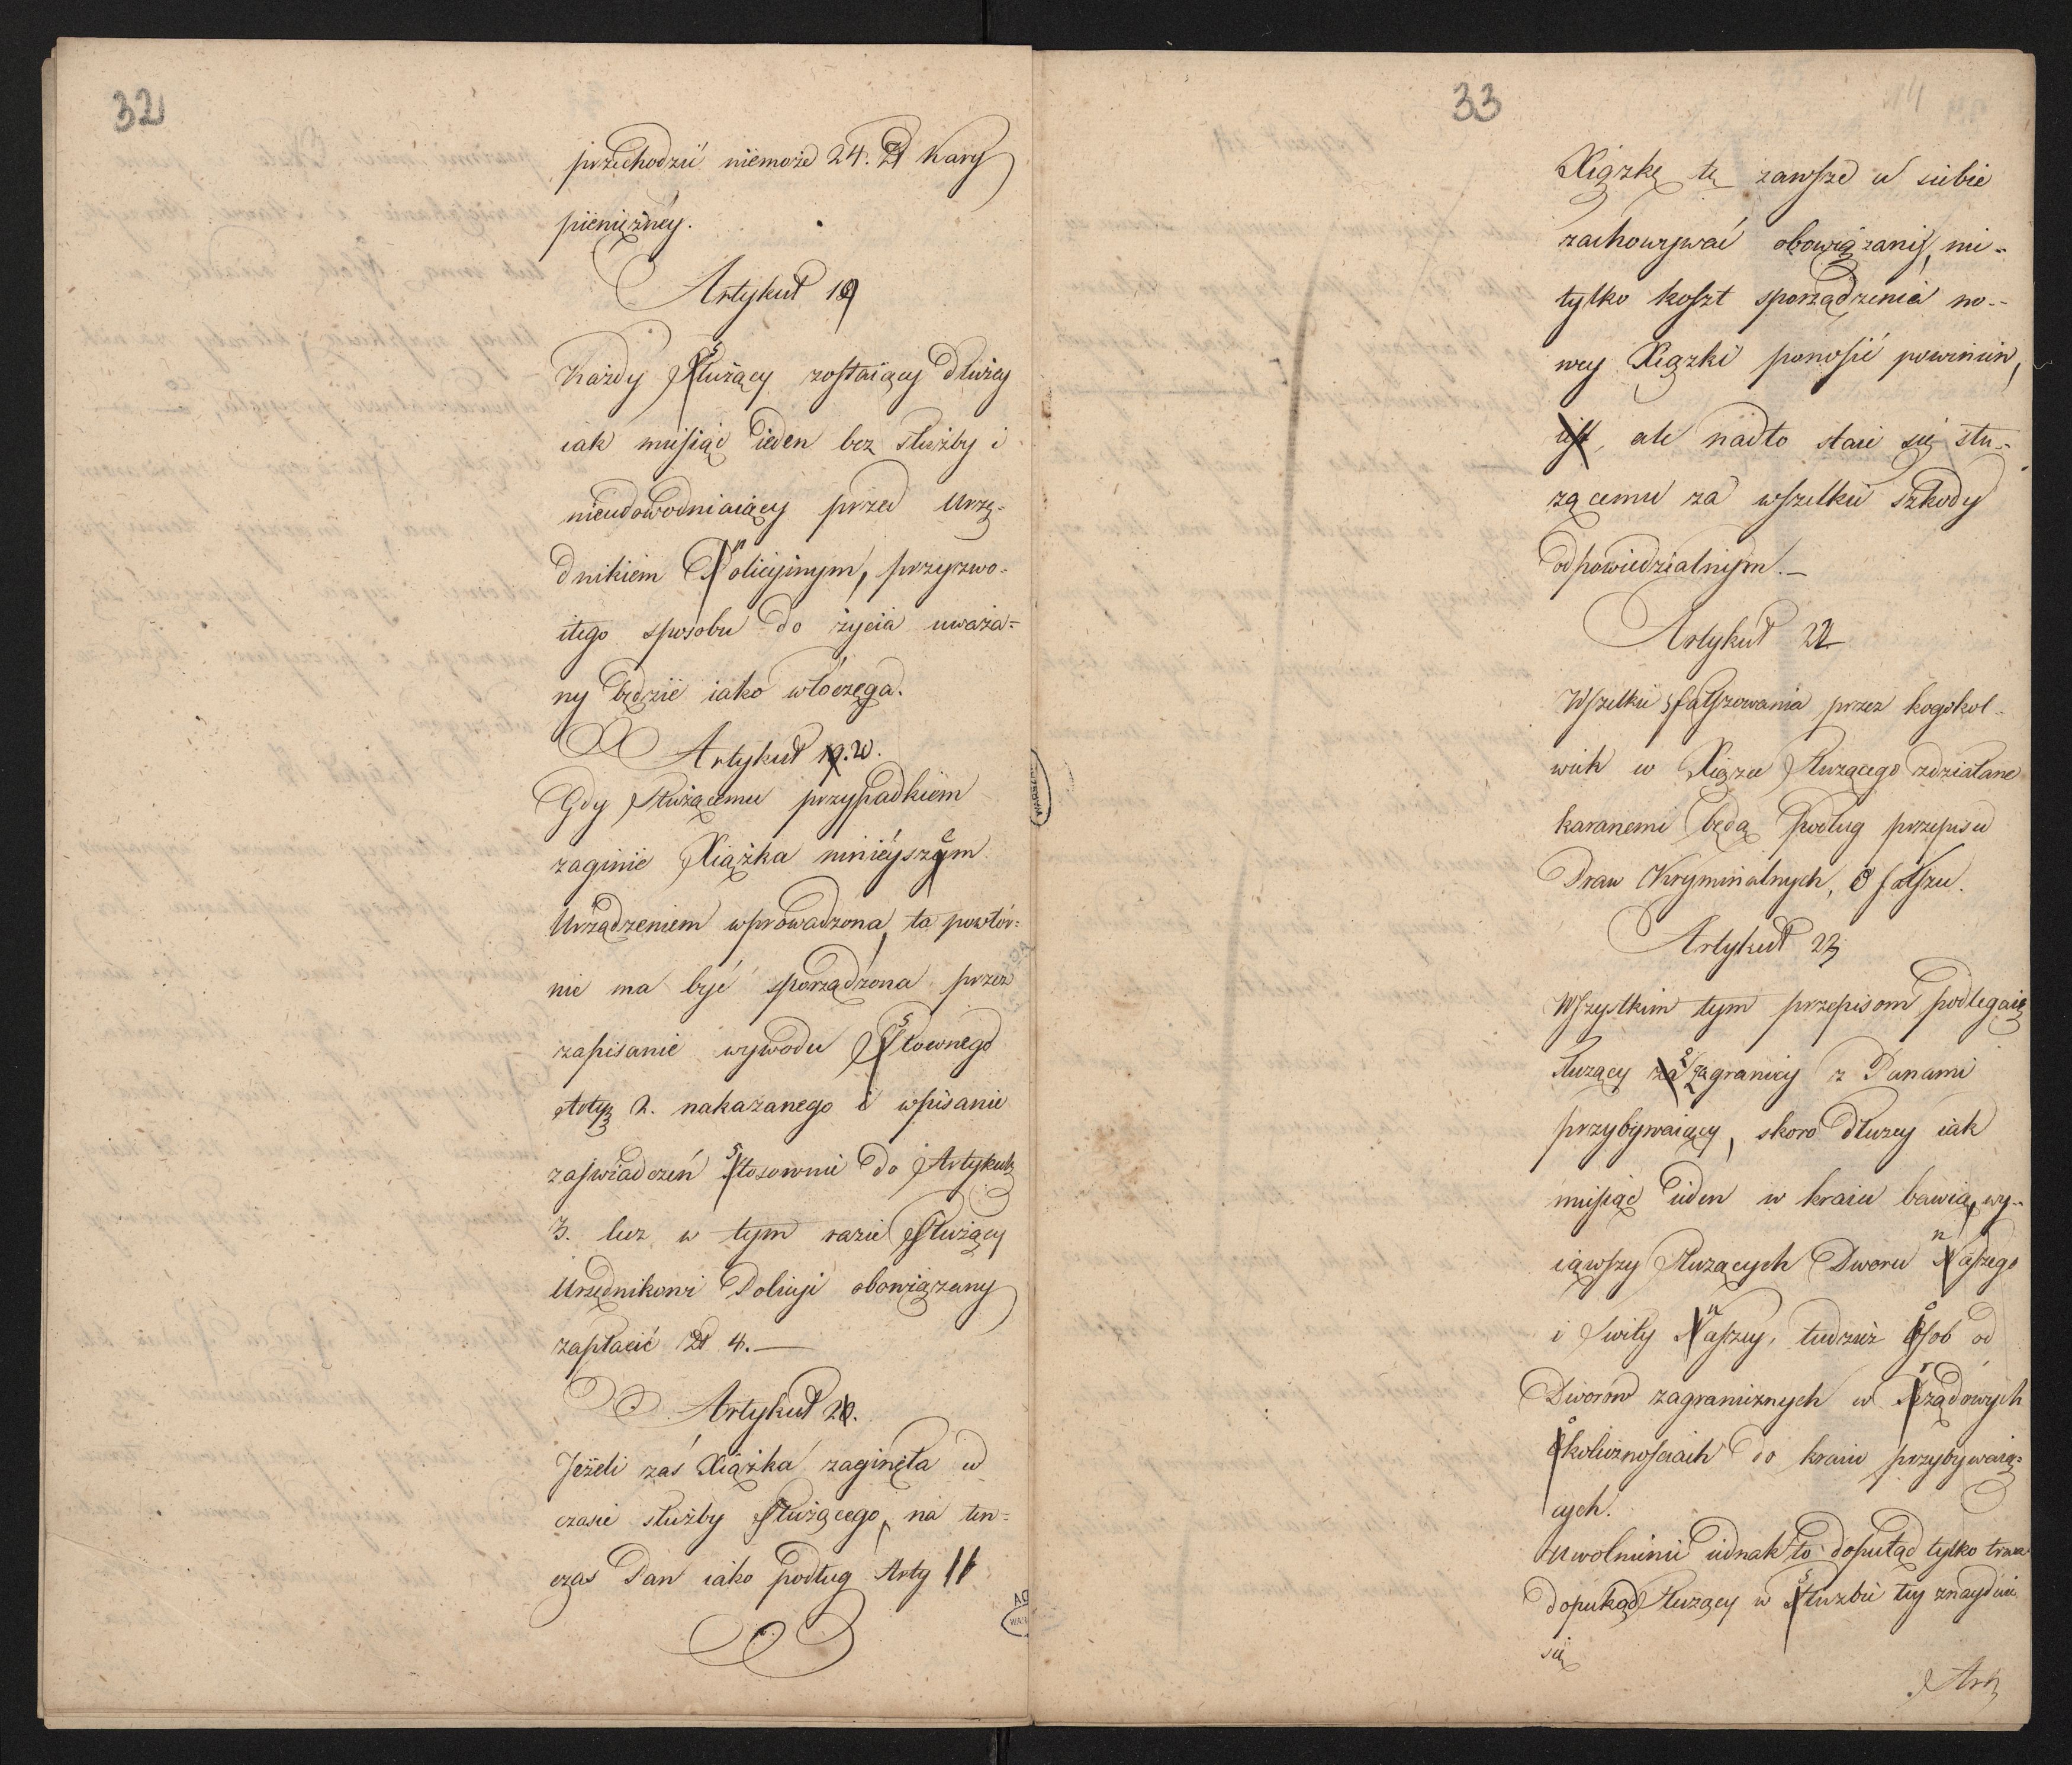 32
przechodzić niemoże 24. Zł kary
pieniężney.
Artykuł 19
Każdy służący zostaiący dłużey
iak miesiąc ieden bez służby i
nieudowodniaiący przed Urzę-
dnikiem Policyjnym, przyzwo-
itego sposobu do życia uważa-
ny będzie iako włóczęga.
Artykuł 20.
Gdy służącemu przypadkiem
zaginie Xiążka ninieyszem
Urządzeniem wprowadzona, ta powtór-
nie ma być sporządzona przez
zapisanie wywodu słownego
Arty 2. nakazanego i wpisanie
zaświadczeń stosownie do Artykułu
3. lecz w tym razie służący
Urzędnikowi Policyi obowiązany
zapłacić Zł 4.—
Artykuł 21.
Jeżeli zaś Xiążka zaginęła w
czasie służby służącego, na ten-
czas Pan iako podług Arty 11
33
14
Xiązkę tę zawsze u siebie
zachowywać obowiązany, nie-
tylko koszt sporządzenia no-
wey Xiązki ponosić powinien,
iest, ale nadto staie się słu-
zącemu za wszelkie szkody
odpowiedzialnym.—
Artykuł 22
Wszelkie sfałszowania przez kogokol-
wiek w Xiązce służącego zdziałane
karanemi będą podług przepisu
Praw Kryminalnych, o fałszu.
Artykuł 23
Wszystkim tym przepisom podlegaią
służący z zagranicy z Panami
przybywaiący, skoro dłużey iak
miesiąc ieden w kraiu bawią, wy-
iąwszy służących Dworu naszego
i świty naszey, tudzież osob od
Dworów zagranicznych w rządowych
okolicznościach do kraiu przybywaią-
cych.
Uwolnienie iednak to dopotąd tylko trwa
dopokąd służący w służbie tey znayduie
się
Arty